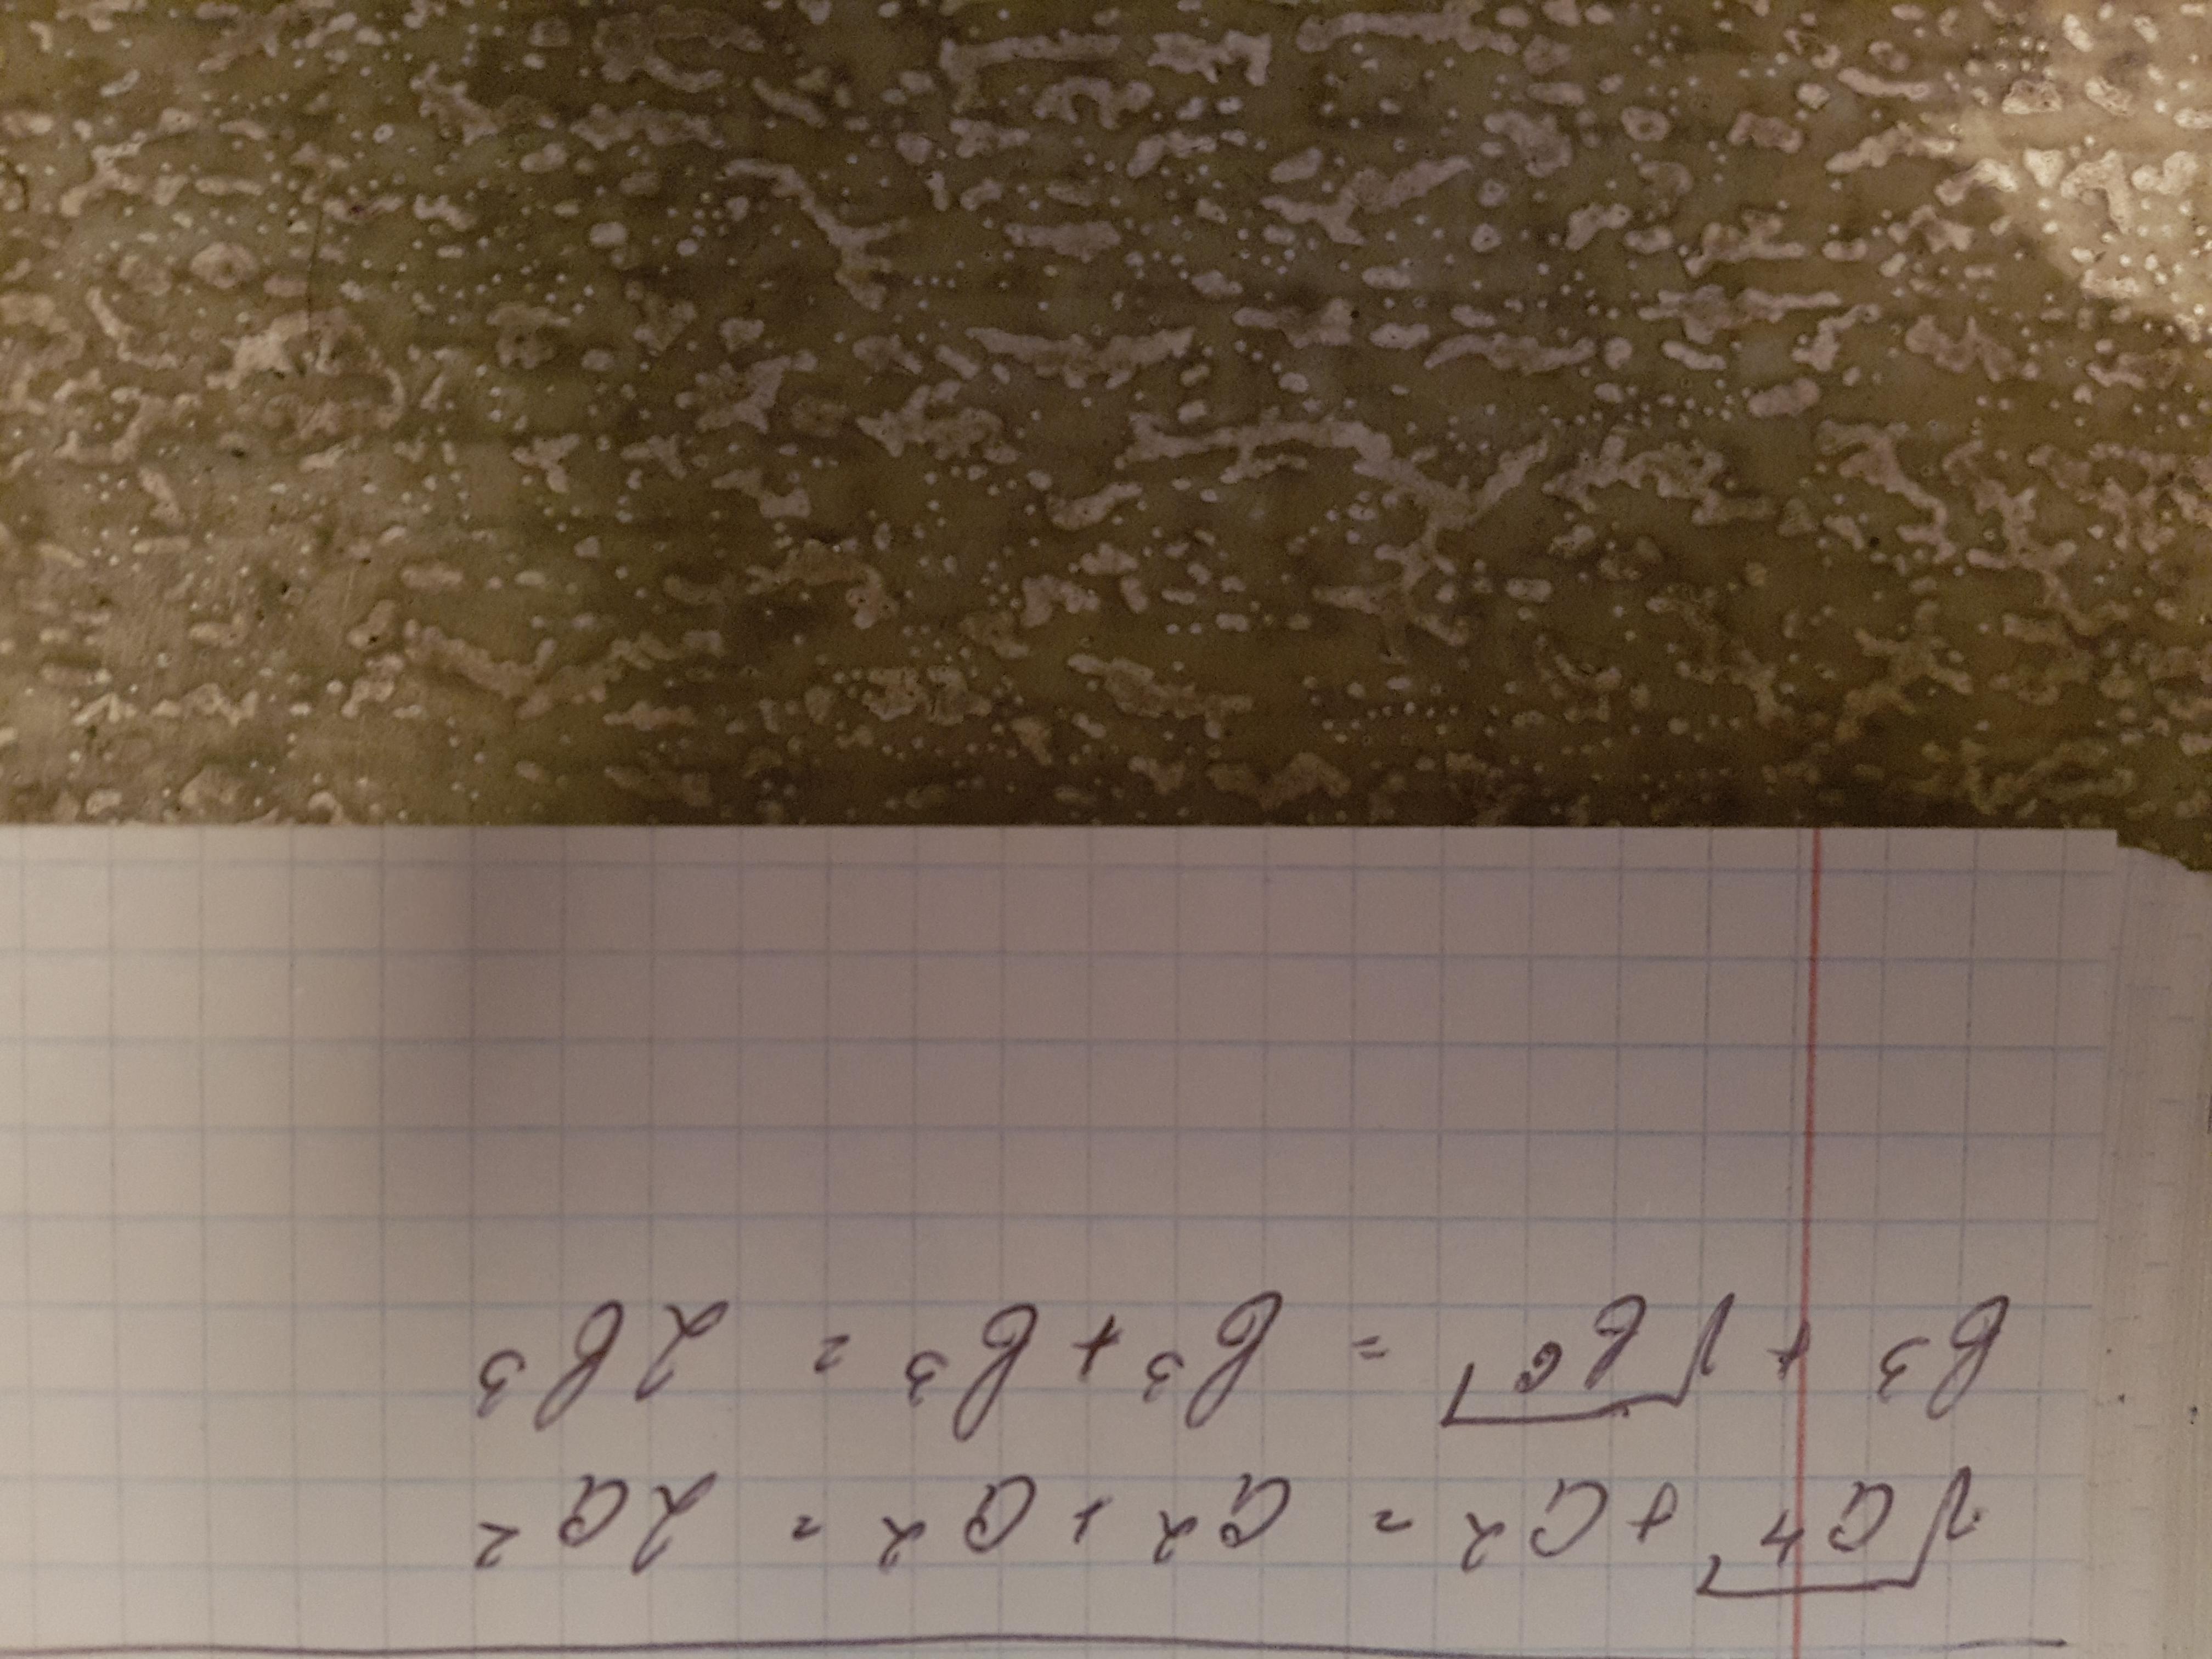 √a⁴ + a² = a² + a² = 2a²
b³ + √b⁶ = b³ + b³ = 2b³